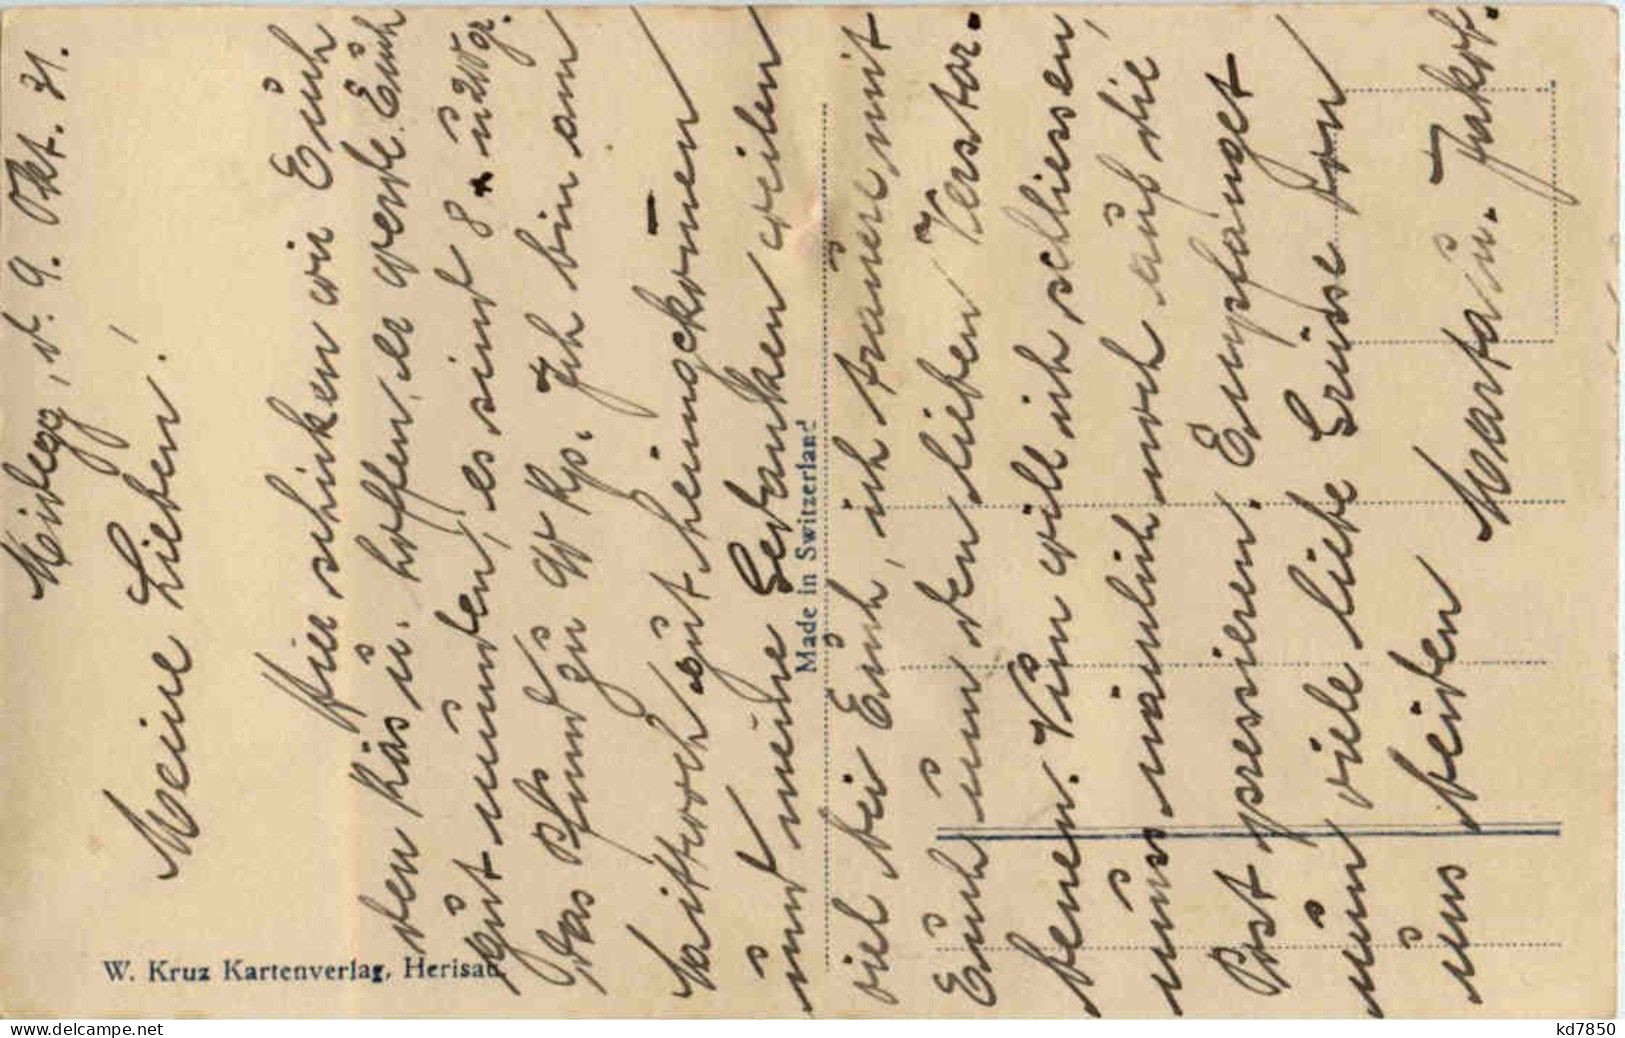 Meistegg, d. 9. Okt. 31.
Meine Lieben!
Hier schicken wir Euch
den Käs u. hoffen, er werde Euch
gut munden, es sind 8 ü 200 gr.
das Pfund zu 90 Rp. Ich bin am
Mittwoch gut heimgekommen
und meine Gedanken weilen
viel bei Euch, ich trauere mit
Euch um den lieben Verstor-
benen. Nun will ich schliessen,
muss nämlich noch auf die
Post pressieren. Empfanget
nun viele liebe Grüsse von
uns beiden
Marta u. Jakob.
W. Kruz Kartenverlag, Herisau.
Made in Switzerland
www.delcampe.net
kd7850